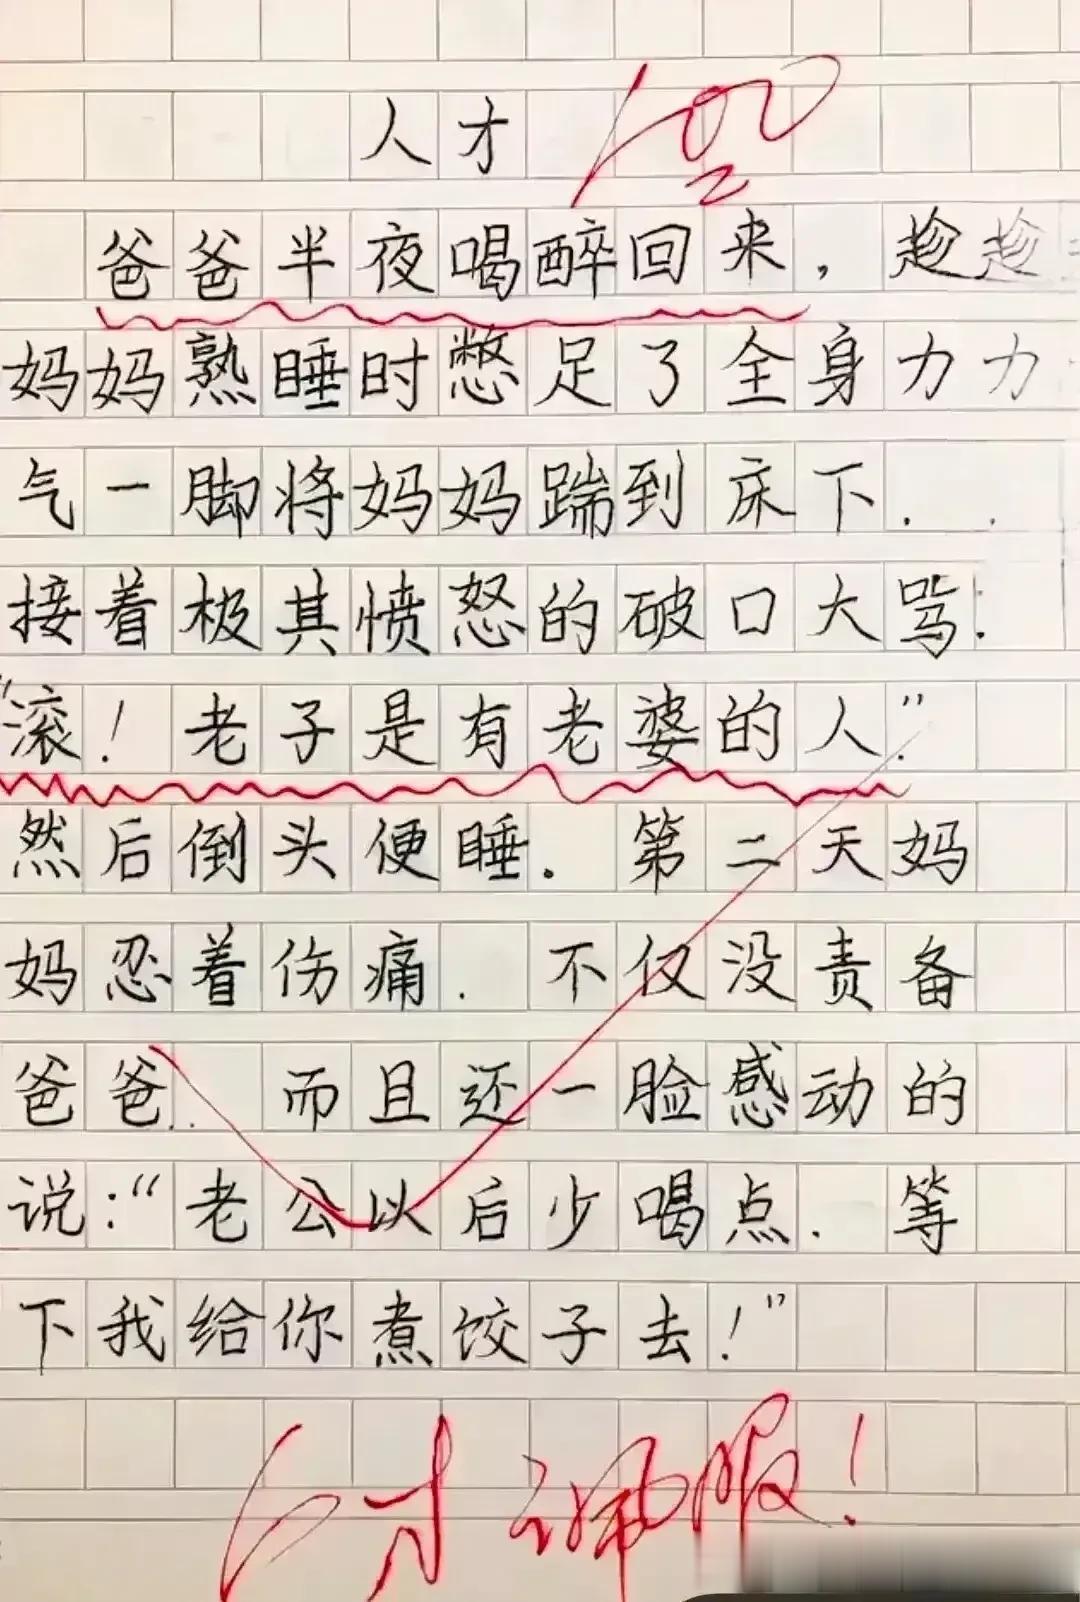 人才 100
爸爸半夜喝醉回来，趁趁
妈妈熟睡时憋足了全身力力
气一脚将妈妈踹到床下．．
接着极其愤怒的破口大骂：
“滚！老子是有老婆的人．”
然后倒头便睡．第二天妈
妈忍着伤痛．不仅没责备
爸爸．．而且还一脸感动的
说：“老公以后少喝点．等
下我给你煮饺子去！”
人才 佩服！